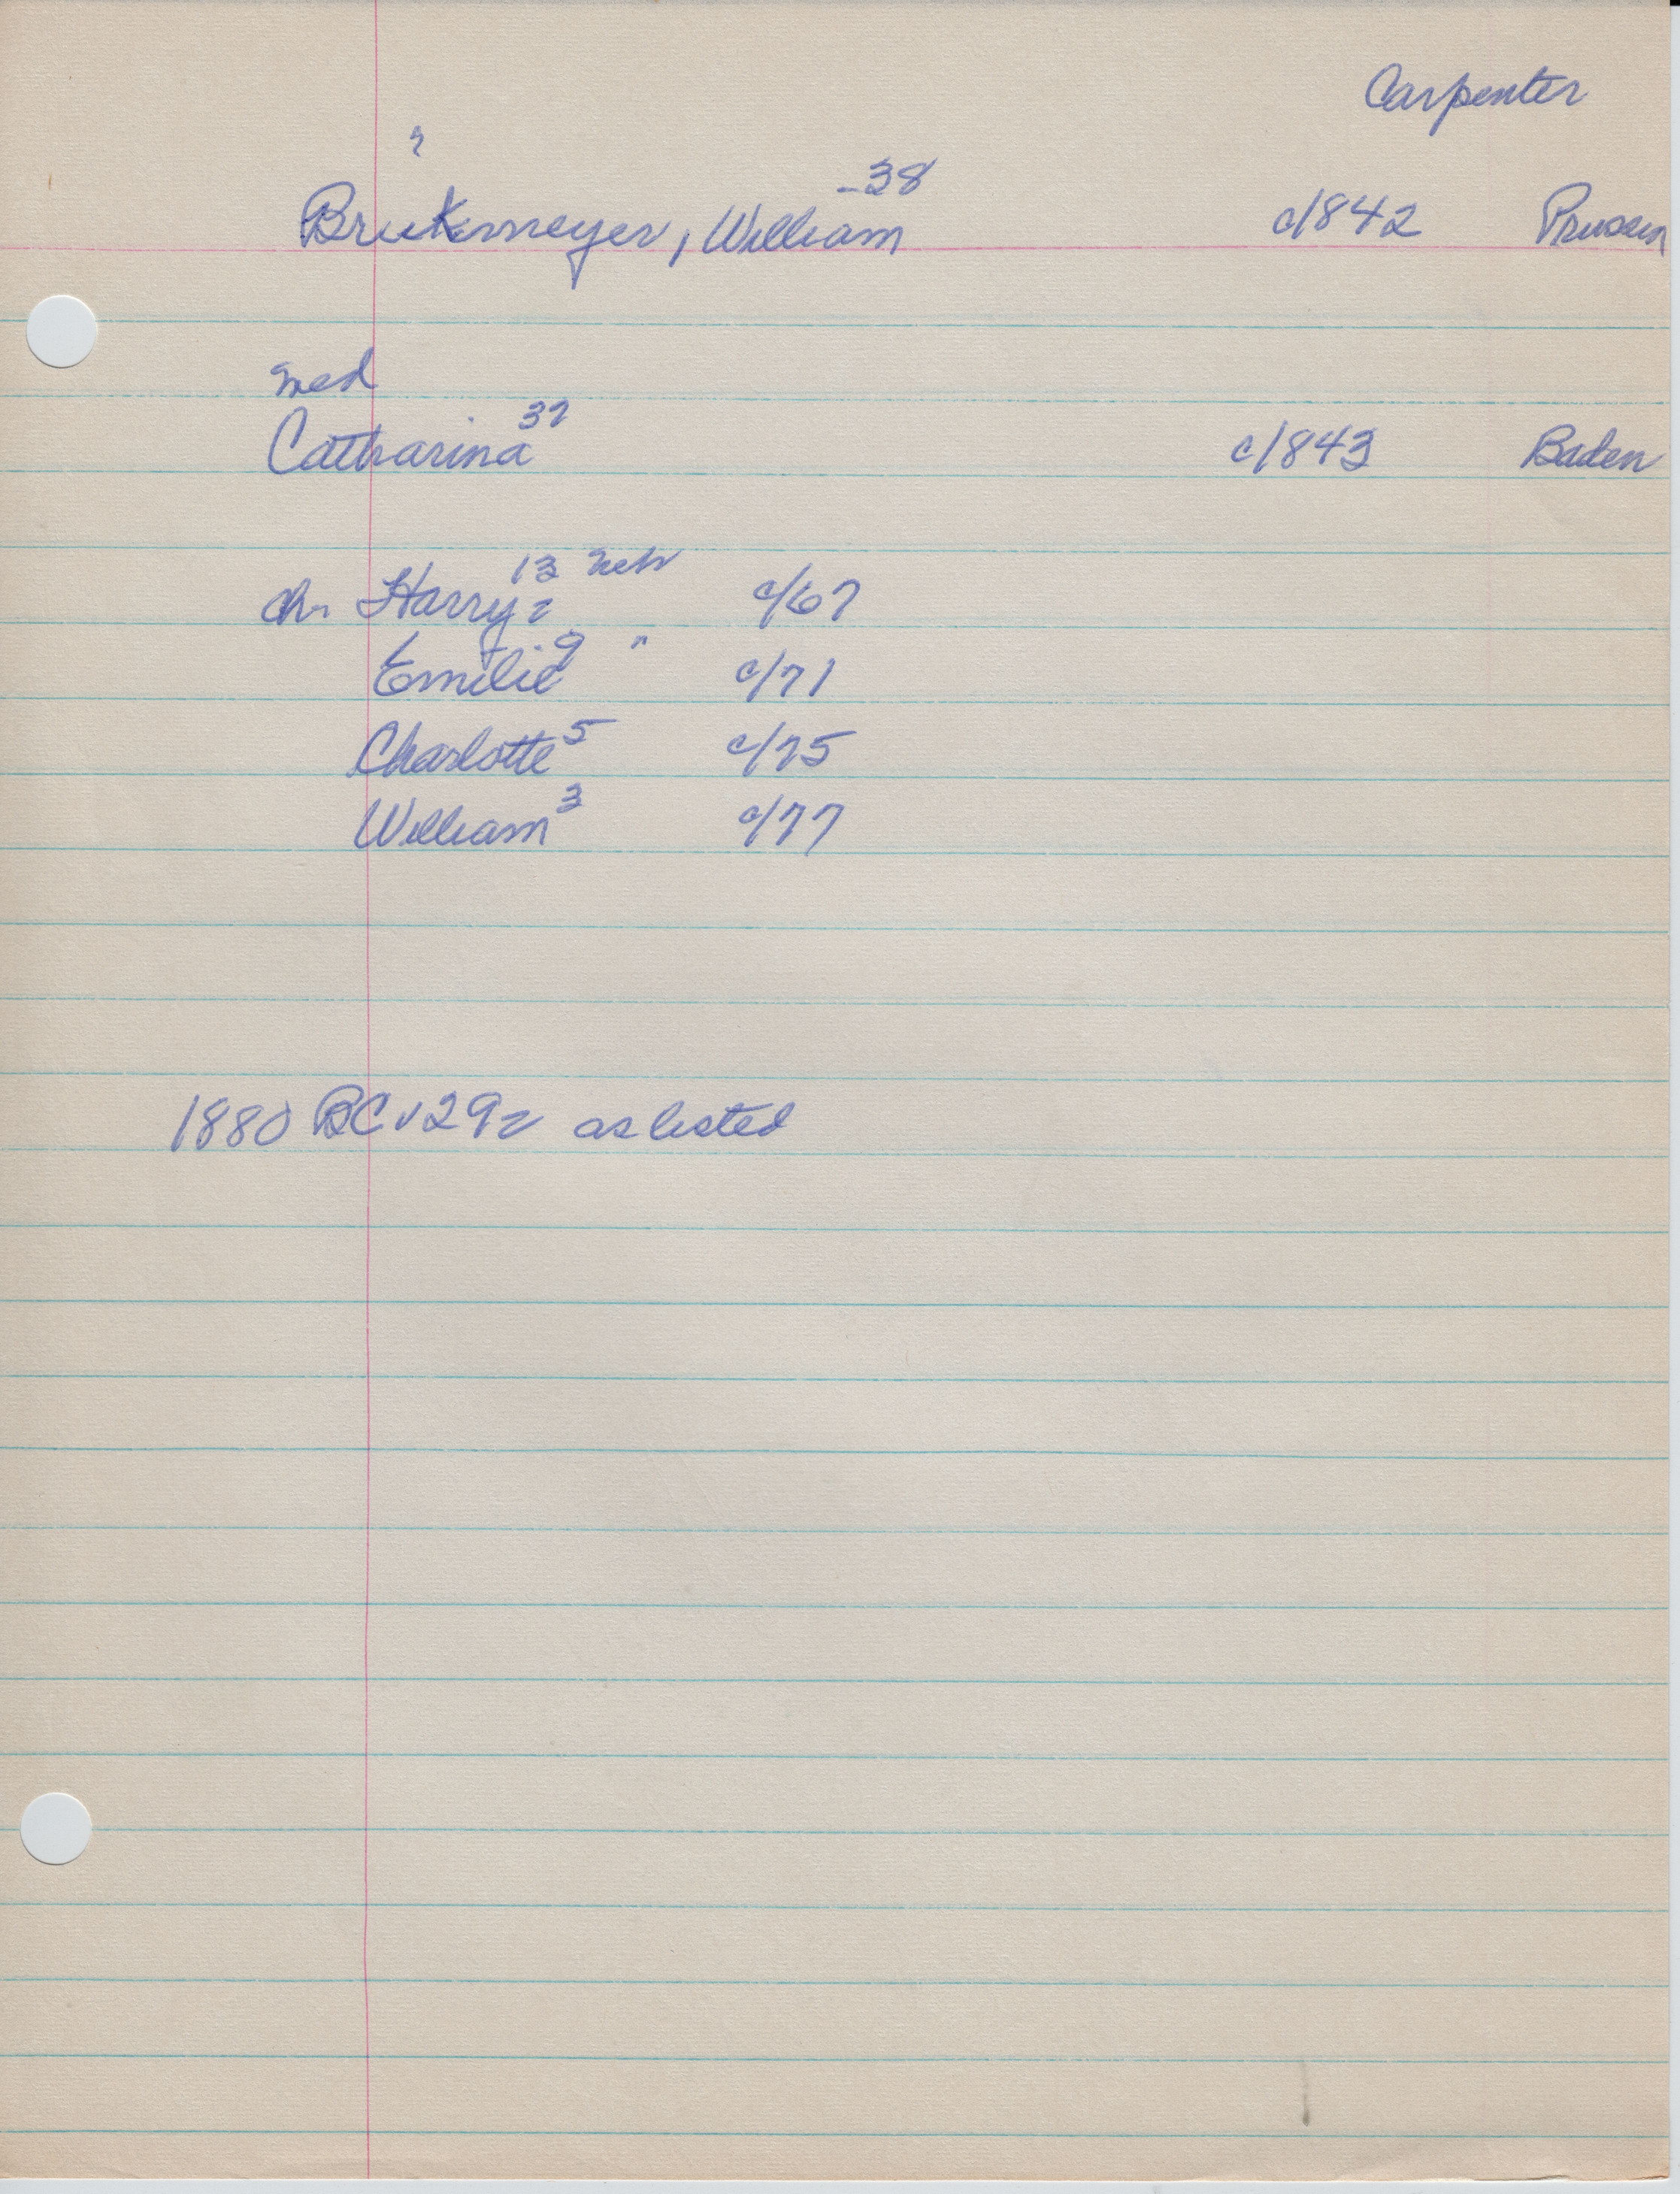 Carpenter
?
Brukmeyer, William -38 c/1842 Prussia
md
Catharina 37 c/1843 Baden
ch. Harry 13 Neb c/67
Emilie 9 " c/71
Charlotte 5 c/75
William 3 c/77
1880 BC v29 as listed